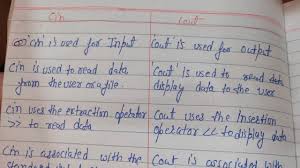 Cin cout
'cin' is used for Input 'cout' is used for output
Cin is used to read data 'cout' is used to read data
from the user or a file. display data to the user
Cin uses the extraction operator cout uses the Insertion
>> to read data operator << to display data
cin is associated with the cout is associated with